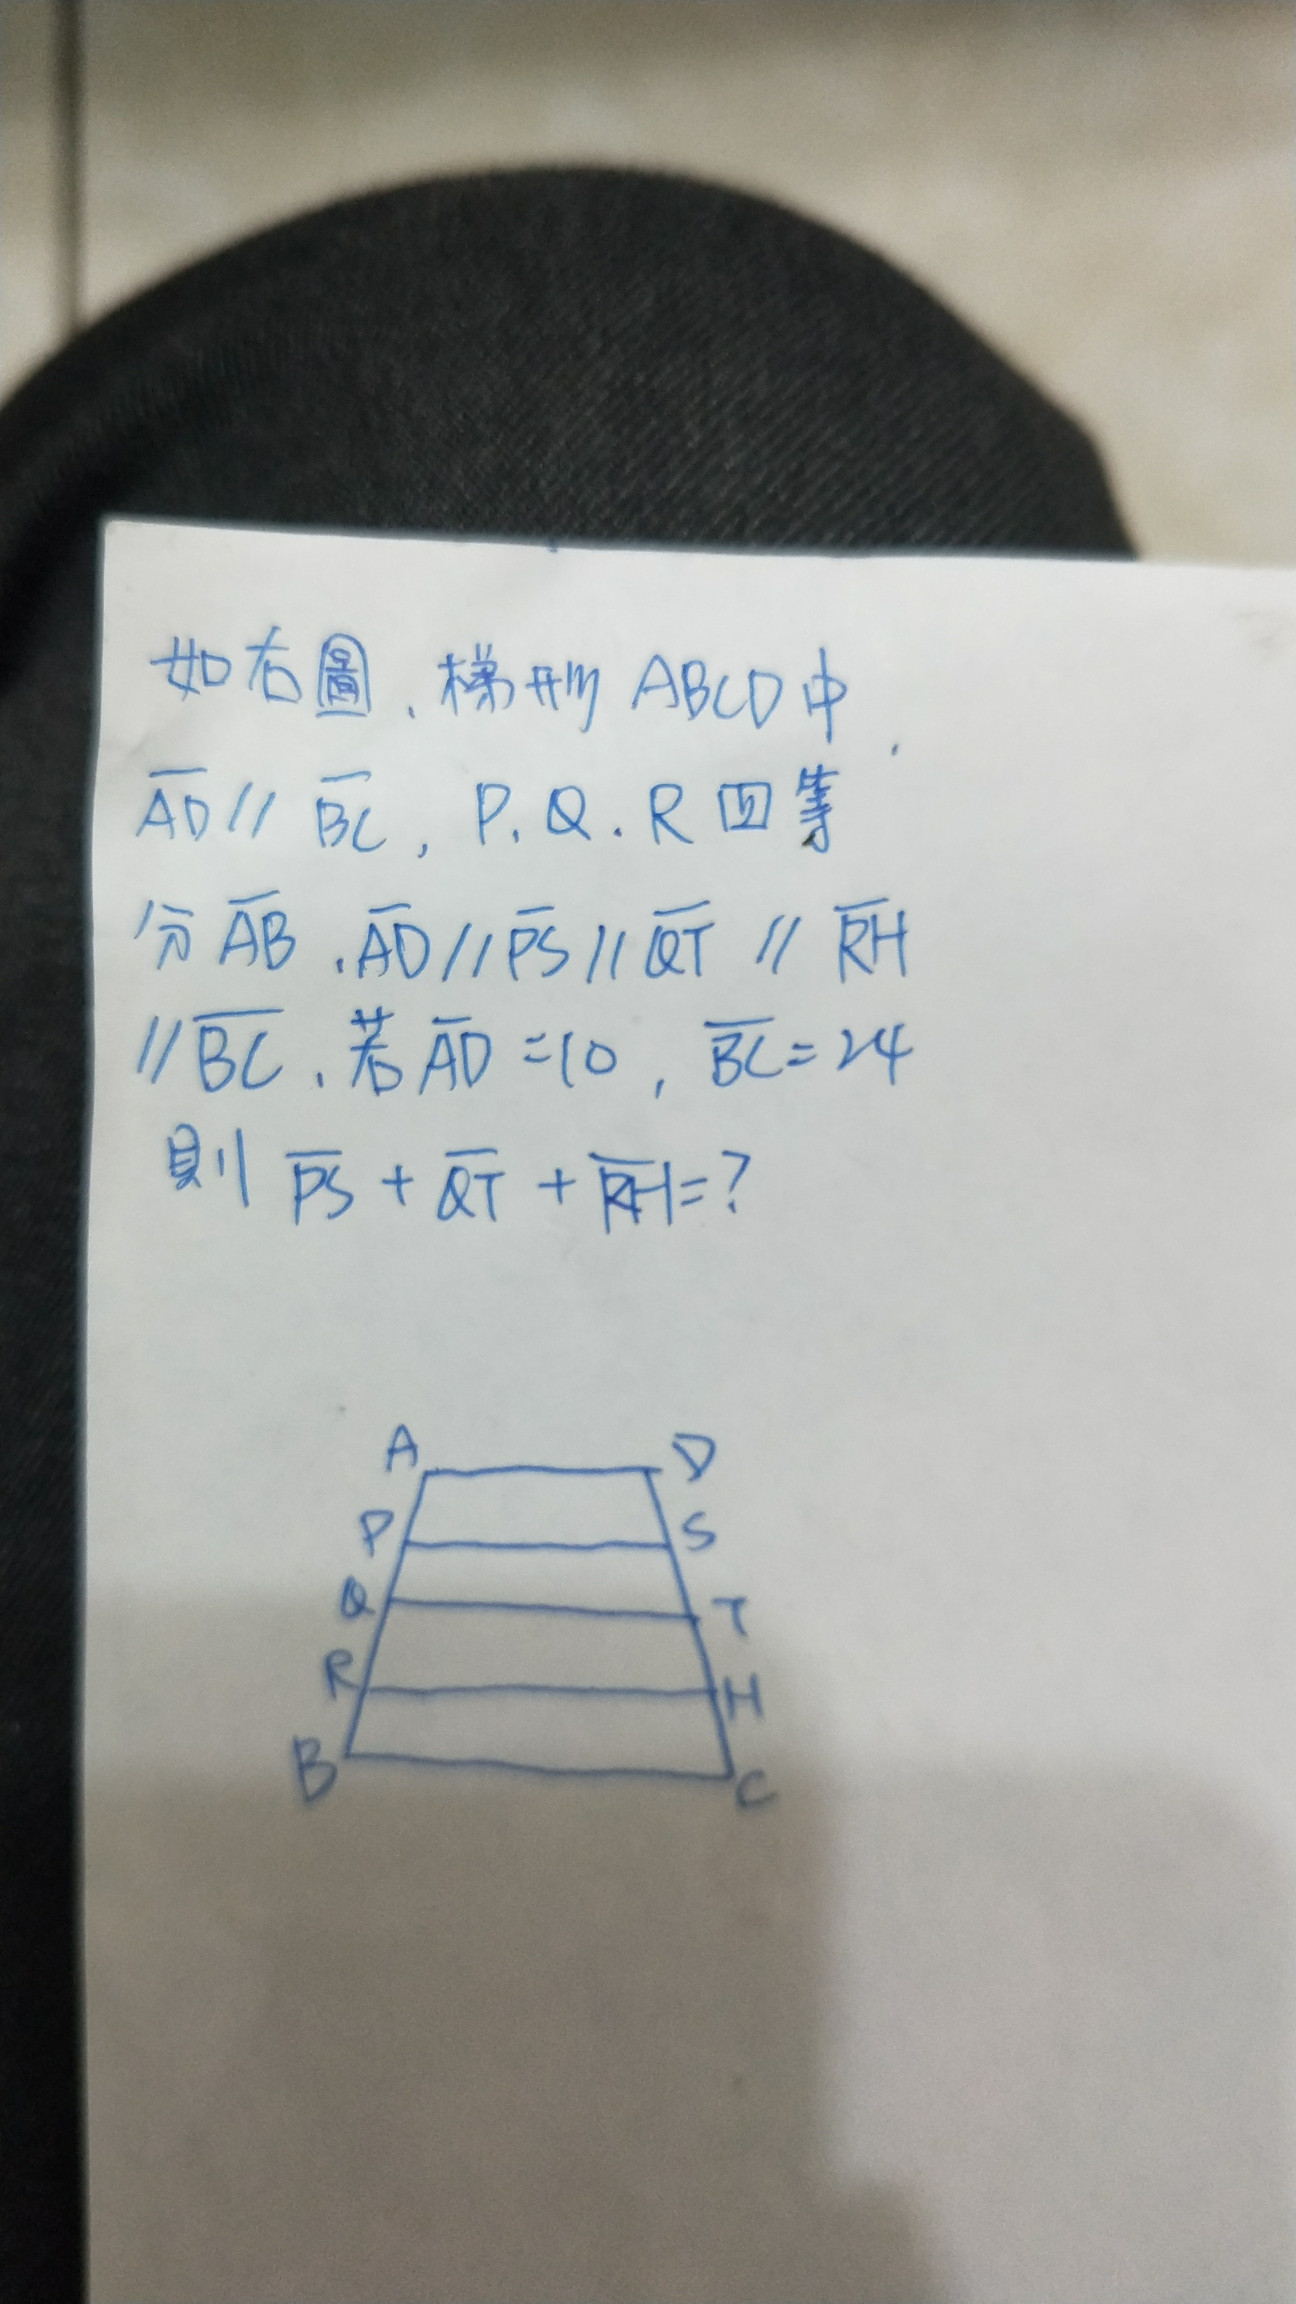 如右圖、梯形ABCD中,
A̅D̅//B̅C̅,P、Q、R四等
分A̅B̅、A̅D̅//P̅S̅//Q̅T̅//R̅H̅
//B̅C̅、若A̅D̅=10,B̅C̅=24
則P̅S̅+Q̅T̅+R̅H̅=?
A D
P S
Q T
R H
B C